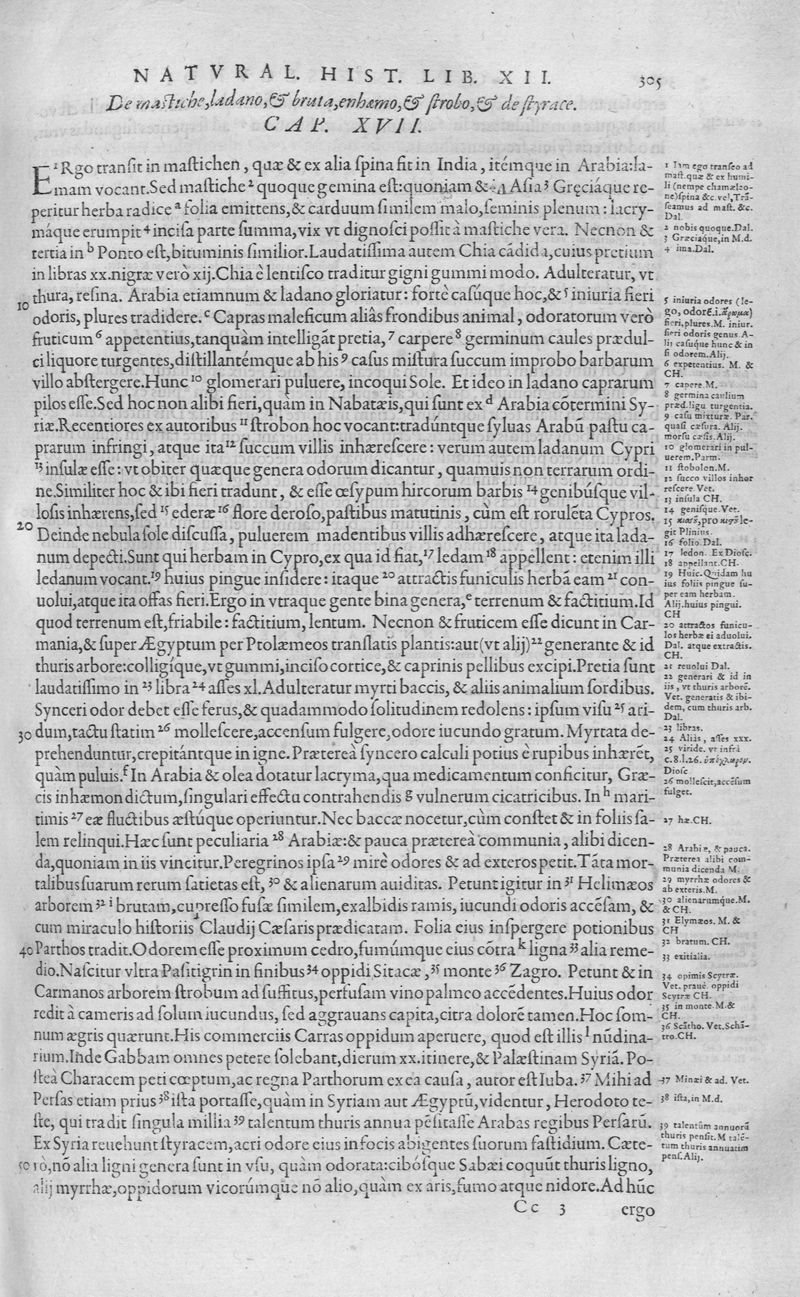 NATVRAL. HIST. LIB. XII. 305
De mastiche, ladano, & bruta, enhæmo, & strobo, & de styrace.
CAP. XVII.
E¹Rgo transit in mastichen, quæ & ex alia spina fit in India, itémque in Arabia: la-
mam vocant. Sed mastiche ² quoque gemina est: quoniam & in Asia ³ Gręciáque re-
peritur herba radice ᵃ folia emittens, & carduum similem malo, seminis plenum: lacry-
máque erumpit ⁴ incisa parte summa, vix vt dignosci possit à mastiche vera. Necnon &
tertia in ᵇ Ponto est, bituminis similior. Laudatissima autem Chia cádida, cuius pretium
in libras xx. nigræ verò xij. Chia è lentisco traditur gigni gummi modo. Adulteratur, vt
10 thura, resina. Arabia etiamnum & ladano gloriatur: fortè casúque hoc, & ⁵ iniuria fieri
odoris, plures tradidere. ᶜ Capras maleficum aliàs frondibus animal, odoratorum verò
fruticum ⁶ appetentius, tanquàm intelligāt pretia, ⁷ carpere ⁸ germinum caules prædul-
ci liquore turgentes, distillantémque ab his ⁹ casus mistura succum improbo barbarum
villo abstergere. Hunc ¹⁰ glomerari puluere, incoqui Sole. Et ideo in ladano caprarum
pilos esse. Sed hoc non alibi fieri, quàm in Nabatæis, qui sunt ex ᵈ Arabia cōtermini Sy-
riæ. Recentiores ex autoribus ¹¹ strobon hoc vocant: tradúntque syluas Arabū pastu ca-
prarum infringi, atque ita ¹² succum villis inhærescere: verum autem ladanum Cypri
¹³ insulæ esse: vt obiter quæque genera odorum dicantur, quamuis non terrarum ordi-
ne. Similiter hoc & ibi fieri tradunt, & esse œsypum hircorum barbis ¹⁴ genibúsque vil-
losis inhærens, sed ¹⁵ ederæ ¹⁶ flore deroso, pastibus matutinis, cùm est rorulēta Cypros.
20 Deinde nebula sole discussa, puluerem madentibus villis adhærescere, atque ita lada-
num depecti. Sunt qui herbam in Cypro, ex qua id fiat, ¹⁷ ledam ¹⁸ appellent: etenim illi
ledanum vocant. ¹⁹ huius pingue insidere: itaque ²⁰ attractis funiculis herbā eam ²¹ con-
uolui, atque ita offas fieri. Ergo in vtraque gente bina genera, ᵉ terrenum & factitium. Id
quod terrenum est, friabile: factitium, lentum. Necnon & fruticem esse dicunt in Car-
mania, & super Ægyptum per Ptolæmeos translatis plantis: aut (vt alij) ²² generante & id
thuris arbore: colligíque, vt gummi, inciso cortice, & caprinis pellibus excipi. Pretia sunt
laudatissimo in ²³ libra ²⁴ asses xl. Adulteratur myrti baccis, & aliis animalium sordibus.
Synceri odor debet esse ferus, & quadammodo solitudinem redolens: ipsum visu ²⁵ ari-
30 dum, tactu statim ²⁶ mollescere, accensum fulgere, odore iucundo gratum. Myrtata de-
prehenduntur, crepitántque in igne. Præterea syncero calculi potius è rupibus inhærēt,
quàm puluis. ᶠ In Arabia & olea dotatur lacryma, qua medicamentum conficitur, Græ-
cis inhæmon dictum, singulari effectu contrahendis ᵍ vulnerum cicatricibus. In ʰ mari-
timis ²⁷ eæ fluctibus æstúque operiuntur. Nec baccæ nocetur, cùm constet & in foliis sa-
lem relinqui. Hæc sunt peculiaria ²⁸ Arabiæ: & pauca præterea communia, alibi dicen-
da, quoniam in iis vincitur. Peregrinos ipsa ²⁹ mirè odores & ad exteros petit. Tāta mor-
talibus suarum rerum satietas est, ³⁰ & alienarum auiditas. Petunt igitur in ³¹ Helimæos
arborem ³² ⁱ brutam, cupresso fusæ similem, exalbidis ramis, iucundi odoris accēsam, &
cum miraculo historiis Claudij Cæsaris prædicatam. Folia eius inspergere potionibus
40 Parthos tradit. Odorem esse proximum cedro, fumúmque eius cōtra ᵏ ligna ³³ alia reme-
dio. Nascitur vltra Pasitigrin in finibus ³⁴ oppidi Sitacæ, ³⁵ monte ³⁶ Zagro. Petunt & in
Carmanos arborem strobum ad suffitus, perfusam vino palmeo accēdentes. Huius odor
redit à cameris ad solum iucundus, sed aggrauans capita, citra dolorē tamen. Hoc som-
num ægris quærunt. His commerciis Carras oppidum aperuere, quod est illis ˡ nūdina-
rium. Inde Gabbam omnes petere solebant, dierum xx. itinere, & Palæstinam Syriā. Po-
steà Characem peti cœptum, ac regna Parthorum ex ea causa, autor est Iuba. ³⁷ Mihi ad
Persas etiam prius ³⁸ ista portasse, quàm in Syriam aut Ægyptū, videntur, Herodoto te-
ste, qui tradit singula millia ³⁹ talentum thuris annua pēsitasse Arabas regibus Persarū.
Ex Syria reuehunt styracem, acri odore eius in focis abigentes suorum fastidium. Cæte-
50 rò, nō alia ligni genera sunt in vsu, quàm odorata: cibósque Sabæi coquūt thuris ligno,
alij myrrhæ, oppidorum vicorúmque nō alio, quàm ex aris, fumo atque nidore. Ad hūc
Cc 3 ergo
1 Iam ego transeo ad
mast. quæ & ex humi-
li (nempe chamæleo-
ne) spina &c. vel, Trā-
seamus ad mast. &c.
Dal.
2 nobis quoque. Dal.
3 Græciáque, in M.d.
4 ima. Dal.
5 iniuria odores (le-
fieri, plures. M. iniur.
fieri odoris genus. A-
lij casuque hunc & in
fi odorem. Alij.
6 expetentius. M. &
CH.
7 capere. M.
8 germina caulium
præd. liqu turgentia.
9 casu mixturæ. Par.
quasi cæsura. Alij.
morsu cæsis. Alij.
10 glomerari in pul-
uerem. Parm.
11 stobolon. M.
12 succo villos inhær
rescere. Vet.
13 insula CH.
14 genisque. Vet.
git Plinius.
16 folio. Dal.
17 ledon. Ex Diosc.
18 appellant. CH.
19 Huic. Quidam hu
ius foliis pingue su-
per eam herbam.
Alij. huius pingui.
CH
20 attractos funicu-
los herbæ ei aduolui.
Dal. atque extractis.
CH.
21 reuolui Dal.
22 generari & id in
iis, vt thuris arborē.
Vet. generatis & ibi-
dem, cum thuris arb.
Dal.
23 libras.
24 Aliàs, asses xxx.
25 viride. vt infrà
Diosc
26 mollescit, accēsum
fulget.
27 hæ. CH.
28 Arabiæ, & pauca.
Præterea alibi com-
munia dicenda M.
29 myrrhæ odores &
ab exteris. M.
30 alienarumque. M.
& CH.
31 Elymæos. M. &
CH
32 bratum. CH.
33 exitialia.
34 opimis Scytræ.
Vet. prauè. oppidi
Scytræ CH.
35 in monte. M. &
CH.
36 Scātho. Vet. Schā-
tro. CH.
37 Minæi & ad. Vet.
38 ista, in M.d.
39 talentūm annuorū
thuris pensit. M talē-
tum thuris annuatim
pens. Alij.